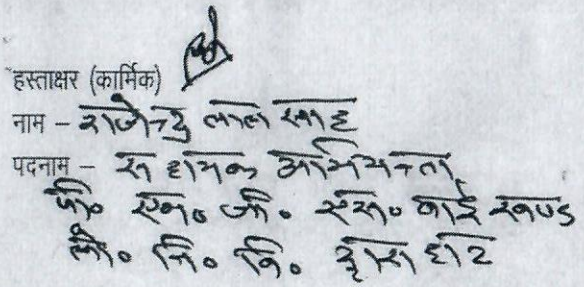 हस्ताक्षर (कार्मिक)
नाम – राजेन्द्र लाल साह
पदनाम – सहायक अभियन्ता
पी० एम० जी० एस० वाई खण्ड
लो० नि० वि० द्वाराहाट